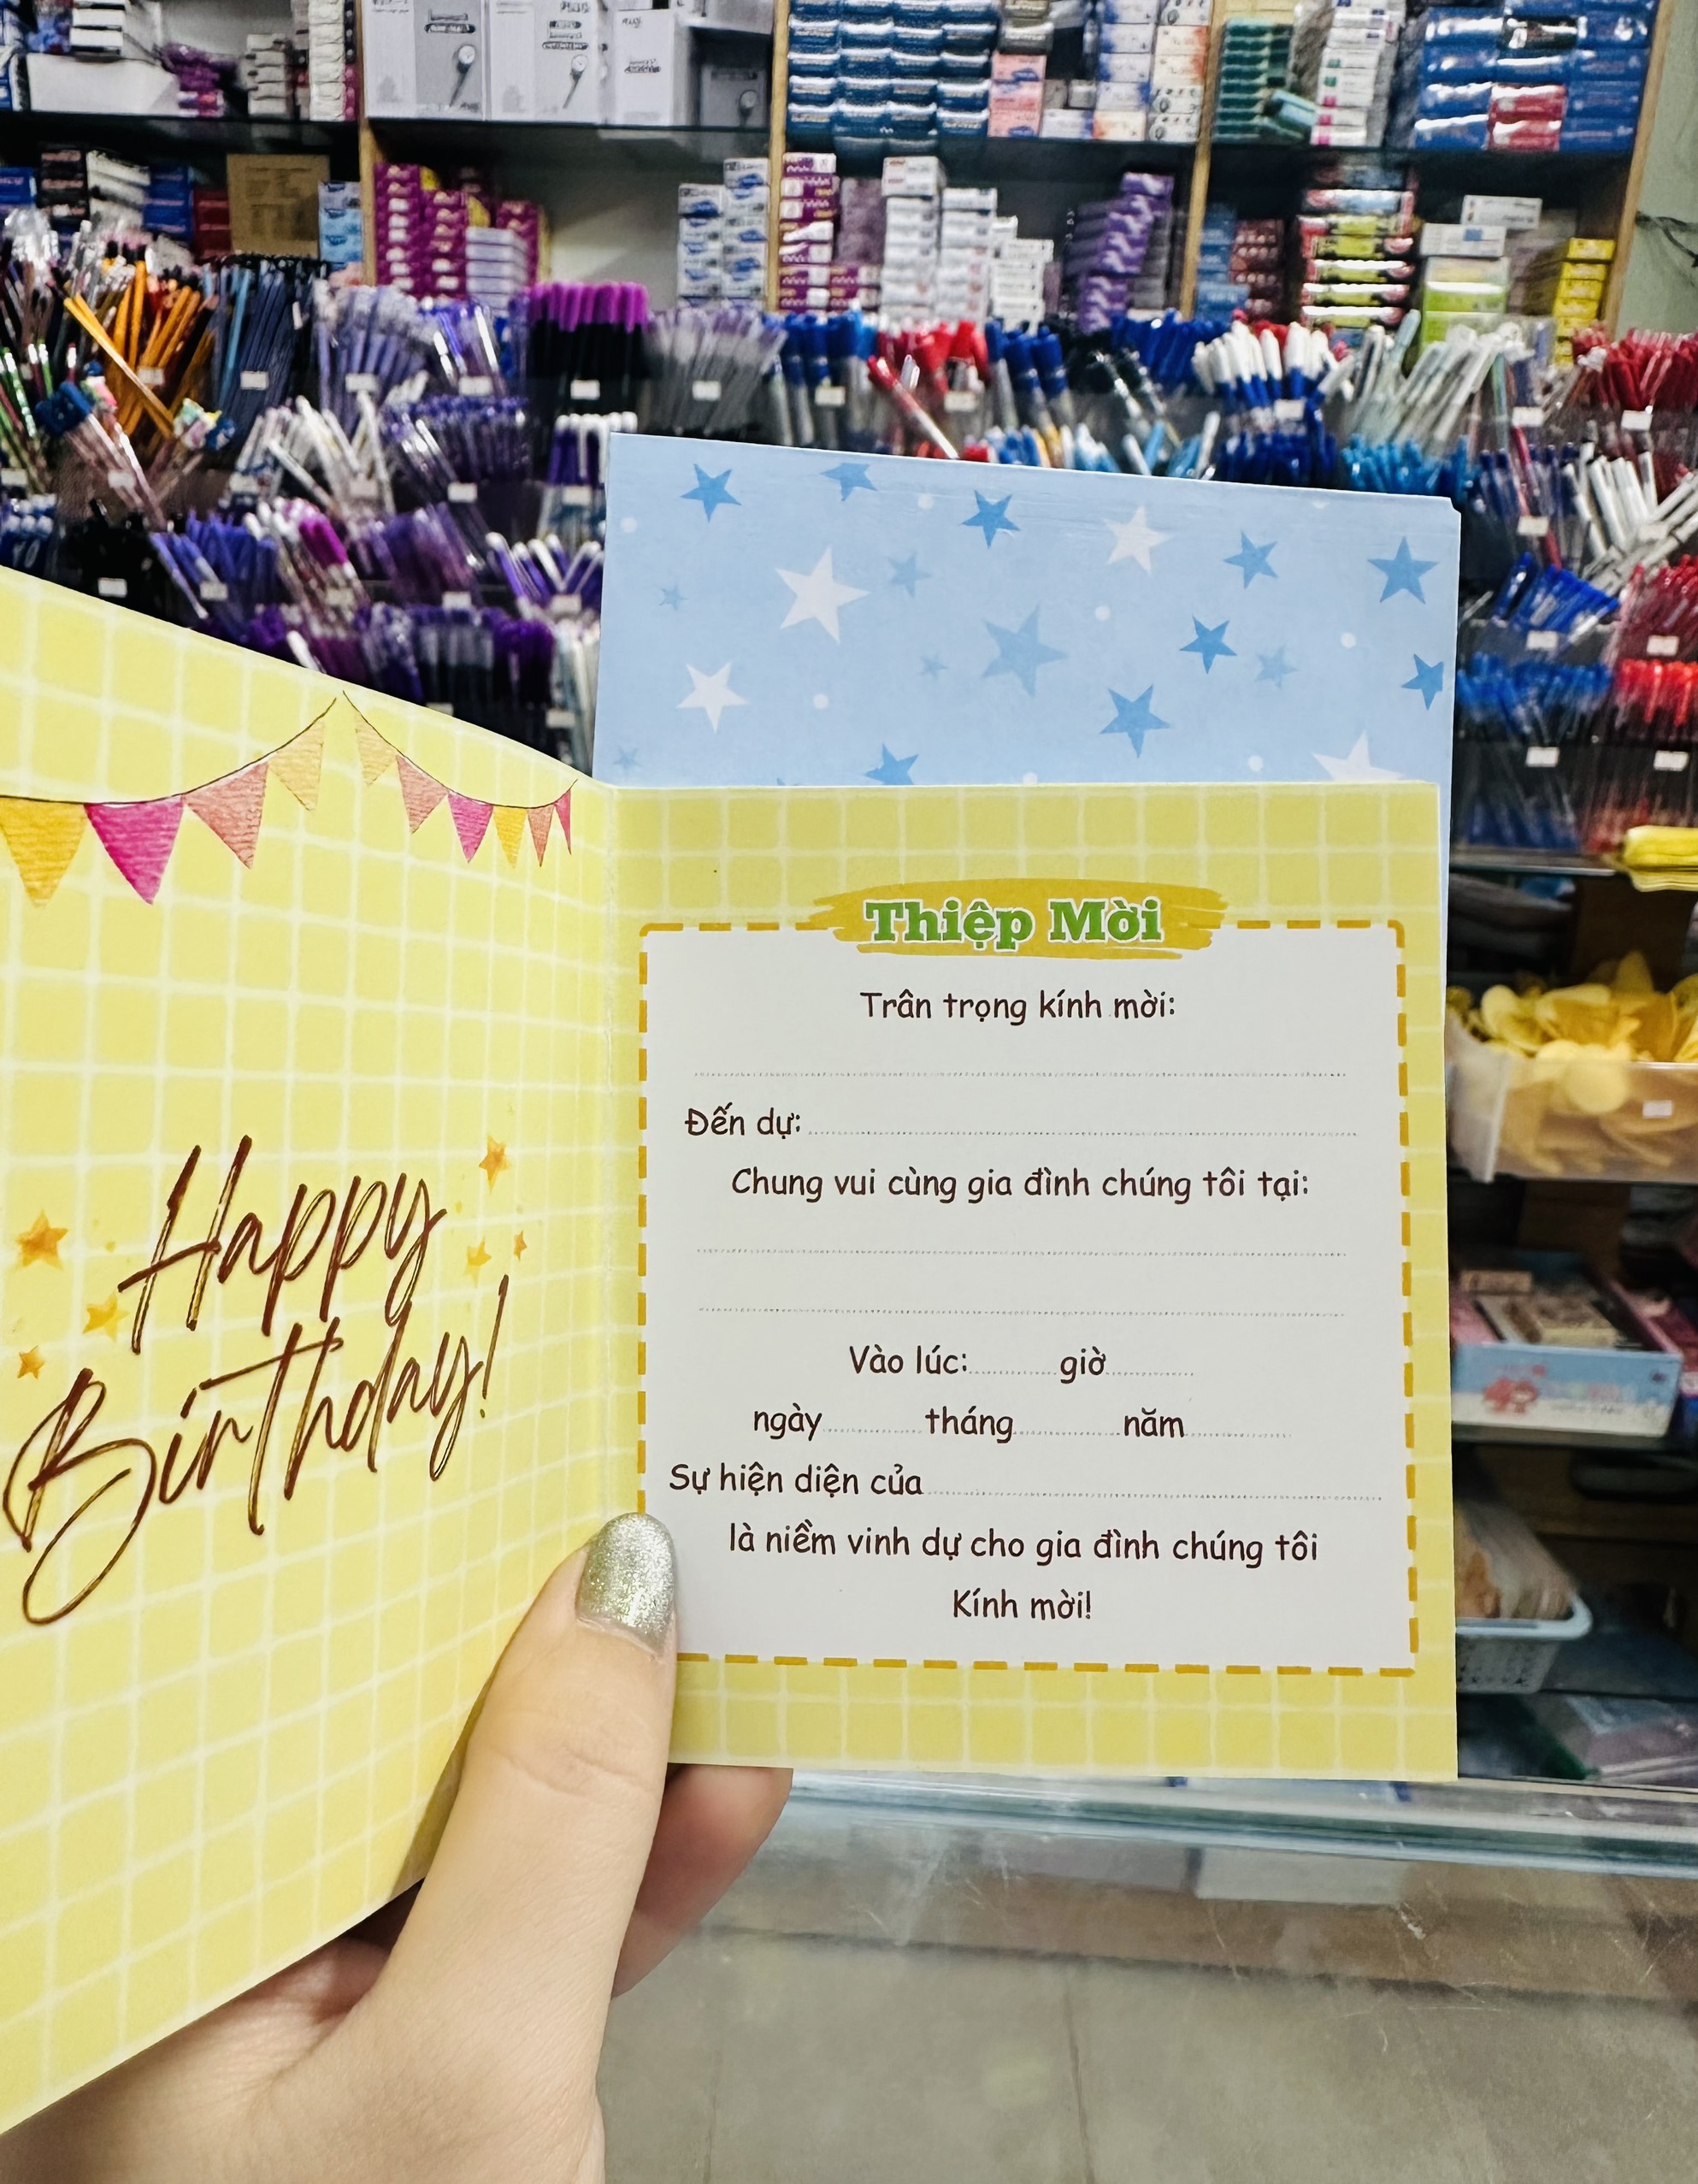 Happy
Birthday!
Thiệp Mời
Trân trọng kính mời:
Đến dự:
Chung vui cùng gia đình chúng tôi tại:
Vào lúc:.........giờ.........
ngày..........tháng..........năm..........
Sự hiện diện của
là niềm vinh dự cho gia đình chúng tôi
Kính mời!